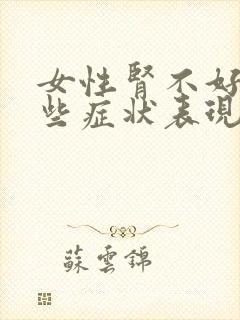 女性腎不好
些症状表現
蘇雲錦